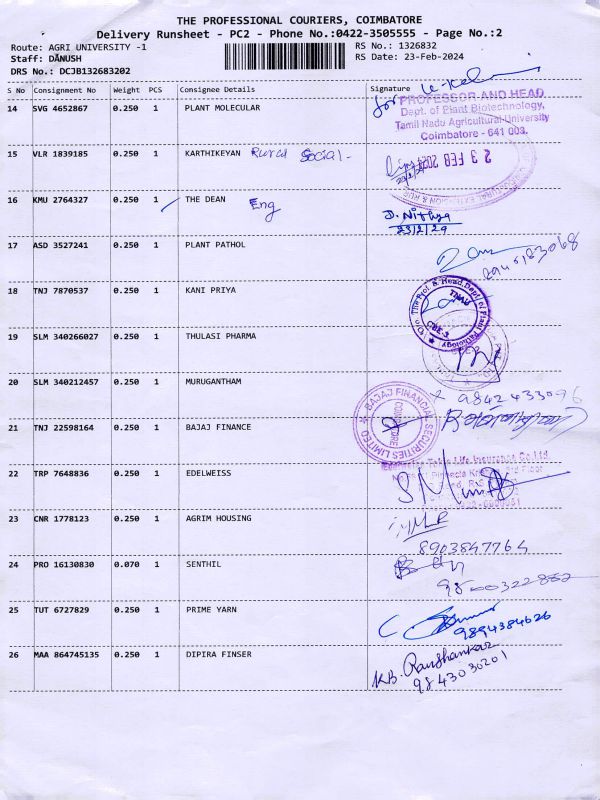 THE PROFESSIONAL COURIERS, COIMBATORE
Delivery Runsheet - PC2 - Phone No.:0422-3505555 - Page No.:2
Route: AGRI UNIVERSITY -1
RS No.: 1326832
Staff: DANUSH
RS Date: 23-Feb-2024
DRS No.: DCJB132683202
S No Consignment No Weight PCS Consignee Details Signature
14 SVG 4652867 0.250 1 PLANT MOLECULAR
for
PROFESSOR AND HEAD
Dept. of Plant Biotechnology,
Tamil Nadu Agricultural University
Coimbatore - 641 003.
15 VLR 1839185 0.250 1 KARTHIKEYAN Rural Social -
23 FEB 2024
16 KMU 2764327 0.250 1 THE DEAN Eng
D. Nithya
23/2/24
17 ASD 3527241 0.250 1 PLANT PATHOL
18 TNJ 7870537 0.250 1 KANI PRIYA
O/o The Prof. & Head, Dept. of Plant Pathology
TNAU
CBE-3
19 SLM 340266027 0.250 1 THULASI PHARMA
20 SLM 340212457 0.250 1 MURUGANTHAM
9842433096
21 TNJ 22598164 0.250 1 BAJAJ FINANCE
BAJAJ FINANCIAL SECURITIES LIMITED
COIMBATORE
22 TRP 7648836 0.250 1 EDELWEISS
Edelweiss Tokio Life Insurance Co Ltd
23 CNR 1778123 0.250 1 AGRIM HOUSING
8903847764
24 PRO 16130830 0.070 1 SENTHIL
25 TUT 6727829 0.250 1 PRIME YARN
9894384626
26 MAA 864745135 0.250 1 DIPIRA FINSER
K.B. Ravishankar
9843030201